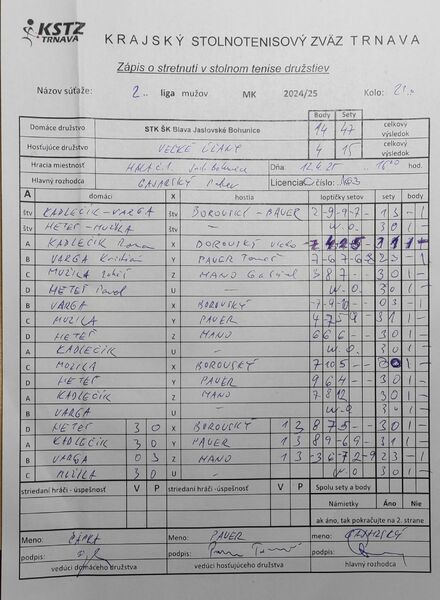 KSTZ
TRNAVA
KRAJSKÝ STOLNOTENISOVÝ ZVÄZ TRNAVA
Zápis o stretnutí v stolnom tenise družstiev
Názov súťaže: 2.. liga mužov MK 2024/25 Kolo: 21..
Body Sety
Domáce družstvo STK ŠK Blava Jaslovské Bohunice 14 47 celkový výsledok
Hosťujúce družstvo VEĽKÉ ÚĽANY 4 15 celkový výsledok
Hracia miestnosť Dňa
Hlavný rozhodca Licencia C číslo:
A domáci X hostia loptičky setov sety body
štv KADLEČÍK-VARGA štv BOROVSKÝ-PAUER 2 -9 -9 -7 - 13 -1
štv HETEŠ-MUZIKA štv - W.O. 30 1-
A KADLEČÍK Roman X BOROVSKÝ 31 1-
B VARGA Kristián Y PAUER Tomáš 23 -1
C MUZIKA Z MANO Gabriel 387 - - 30 1-
D HETEŠ Pavol U - W.O. 30 1-
B VARGA X BOROVSKÝ -7 -9 03 -1
C MUZIKA Y PAUER 31 1-
D HETEŠ Z MANO 666 - - 30 1-
A KADLEČÍK U - W.O. 30 1-
C MUZIKA X BOROVSKÝ 7105 - - 30 1-
D HETEŠ Y PAUER 964 - - 30 1-
A KADLEČÍK Z MANO 7812 30 1-
B VARGA U W.O 30 1-
D HETEŠ 3 0 X BOROVSKÝ 1 3 875 - - 30 1-
A KADLEČÍK 3 0 Y PAUER 1 3 31 1-
B VARGA 0 3 Z MANO 1 3 -3 6 7 -2 -9 23 -1
C MUZIKA 3 0 U W.O 30 1-
striedaní hráči - úspešnosť V P striedaní hráči - úspešnosť V P Spolu sety a body
Námietky Áno Nie
ak áno, tak pokračujte na 2. strane
Meno: Meno: PAUER Meno:
podpis: podpis: podpis:
vedúci domáceho družstva vedúci hosťujúceho družstva hlavný rozhodca